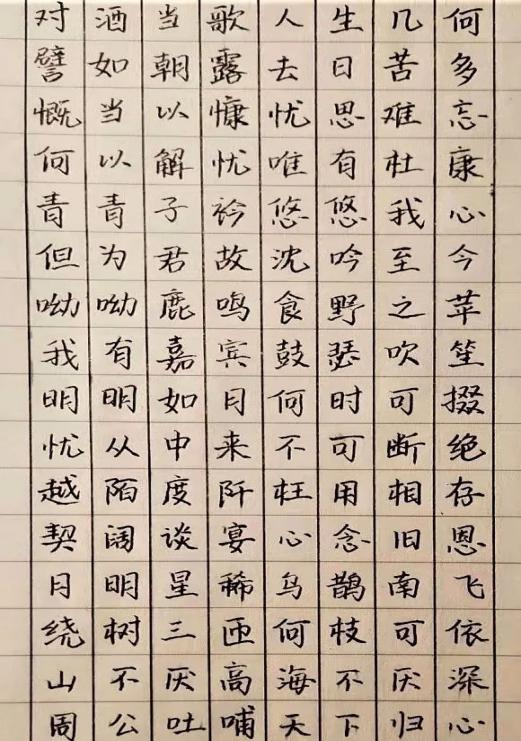 对酒当歌人生几何
譬如朝露去日苦多
慨当以慷忧思难忘
何以解忧唯有杜康
青青子衿悠悠我心
但为君故沈吟至今
呦呦鹿鸣食野之苹
我有嘉宾鼓瑟吹笙
明明如月何时可掇
忧从中来不可断绝
越陌度阡枉用相存
契阔谈宴心念旧恩
月明星稀乌鹊南飞
绕树三匝何枝可依
山不厌高海不厌深
周公吐哺天下归心